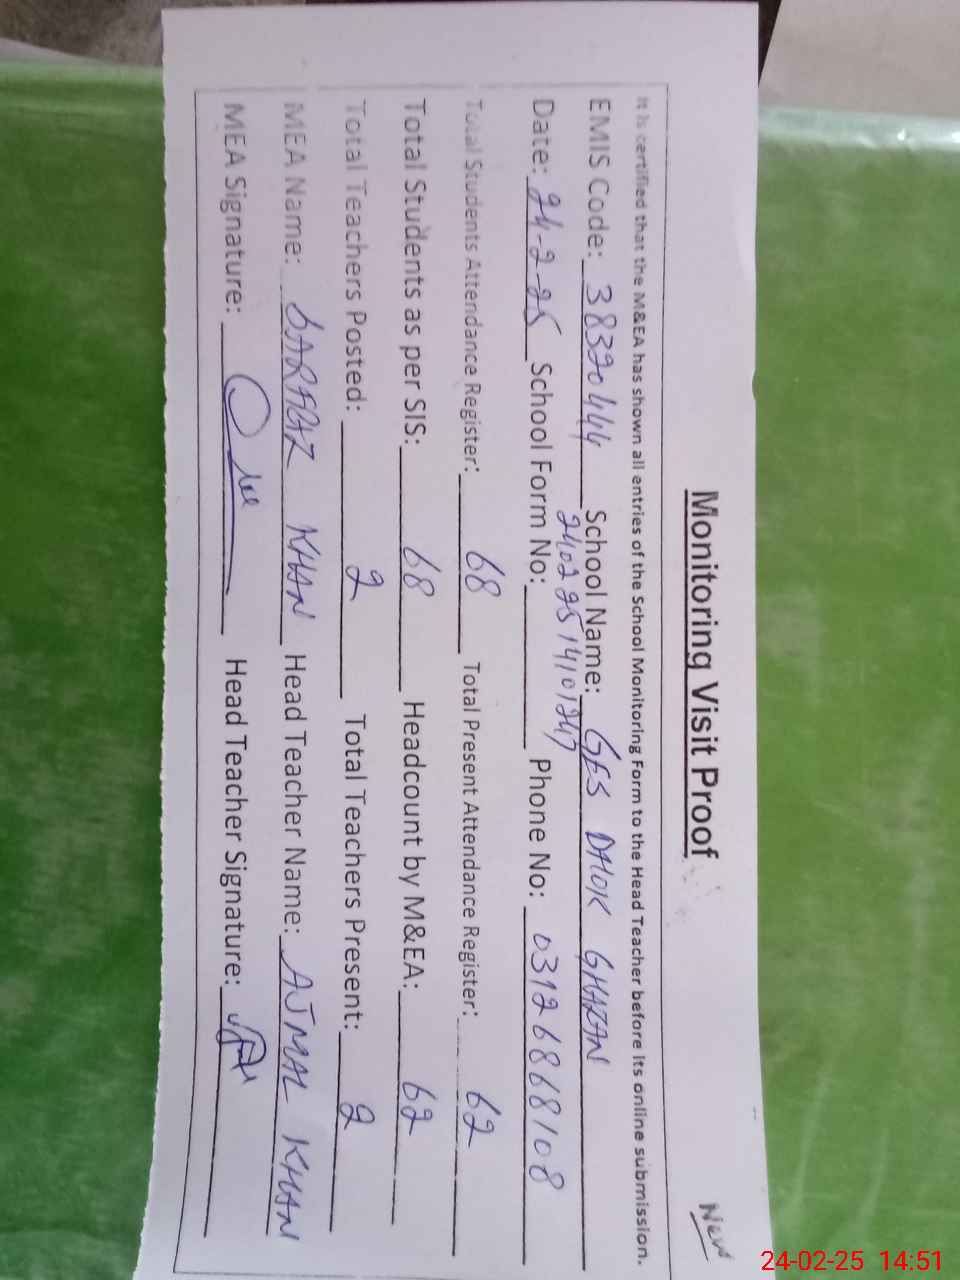 New
Monitoring Visit Proof
It is certified that the M&EA has shown all entries of the School Monitoring Form to the Head Teacher before its online submission.
EMIS Code: 38320444 School Name: GES DHOK GHAKAN
Date: 24-2-25 School Form No: 24022514101247 Phone No: 03126868108
Total Students Attendance Register: 68 Total Present Attendance Register: 62
Total Students as per SIS: 68 Headcount by M&EA: 62
Total Teachers Posted: 2 Total Teachers Present: 2
MEA Name: SARFRAZ KHAN Head Teacher Name: AJMAL KHAN
MEA Signature: Head Teacher Signature:
24-02-25 14:51